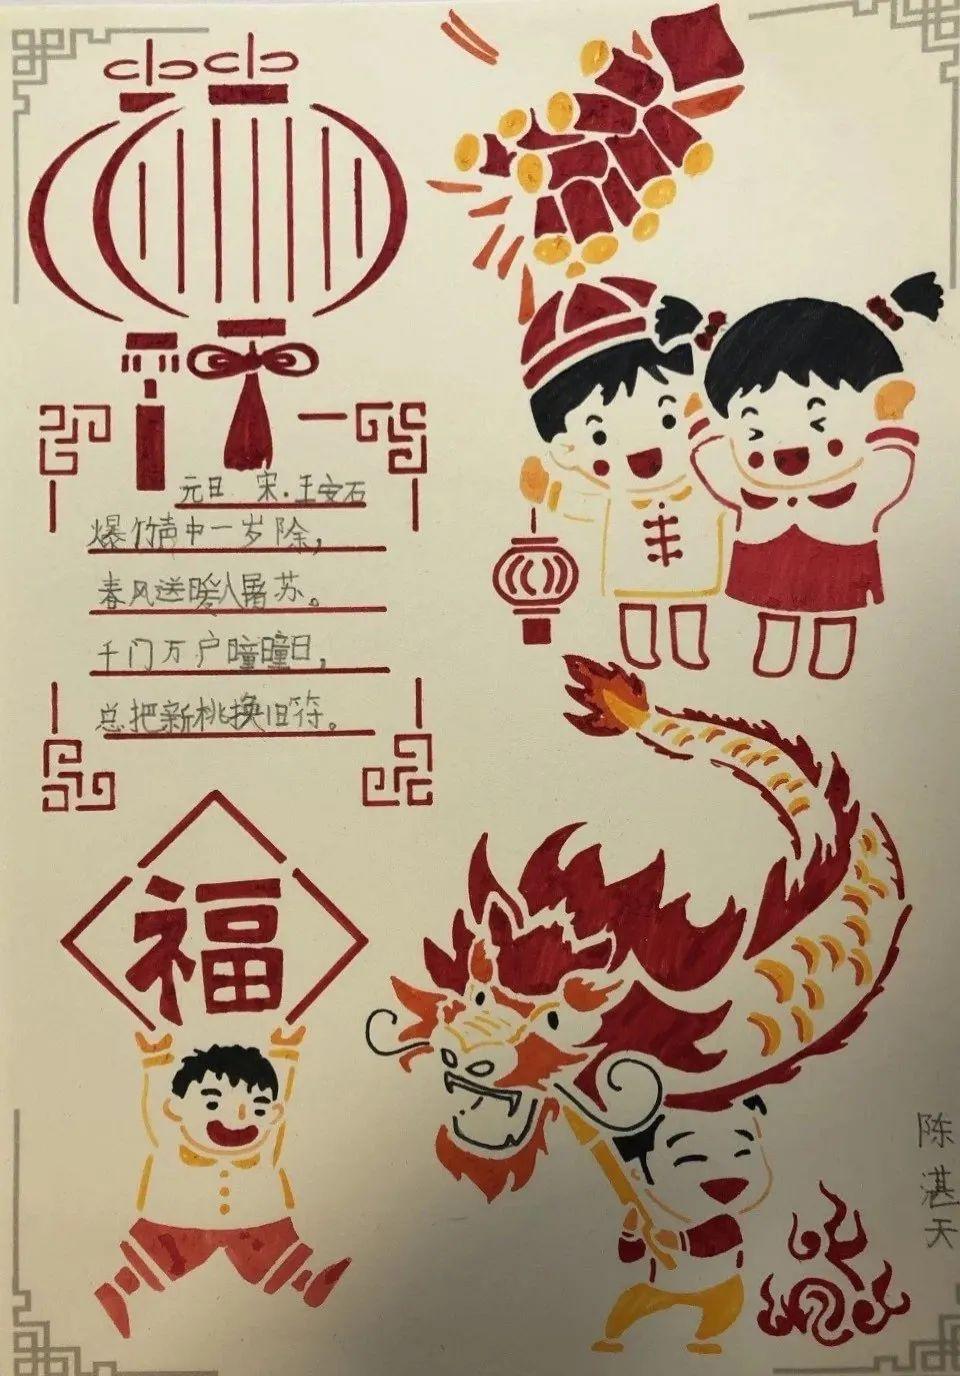 元日 宋·王安石
爆竹声中一岁除，
春风送暖入屠苏。
千门万户曈曈日，
总把新桃换旧符。
福
陈湛天